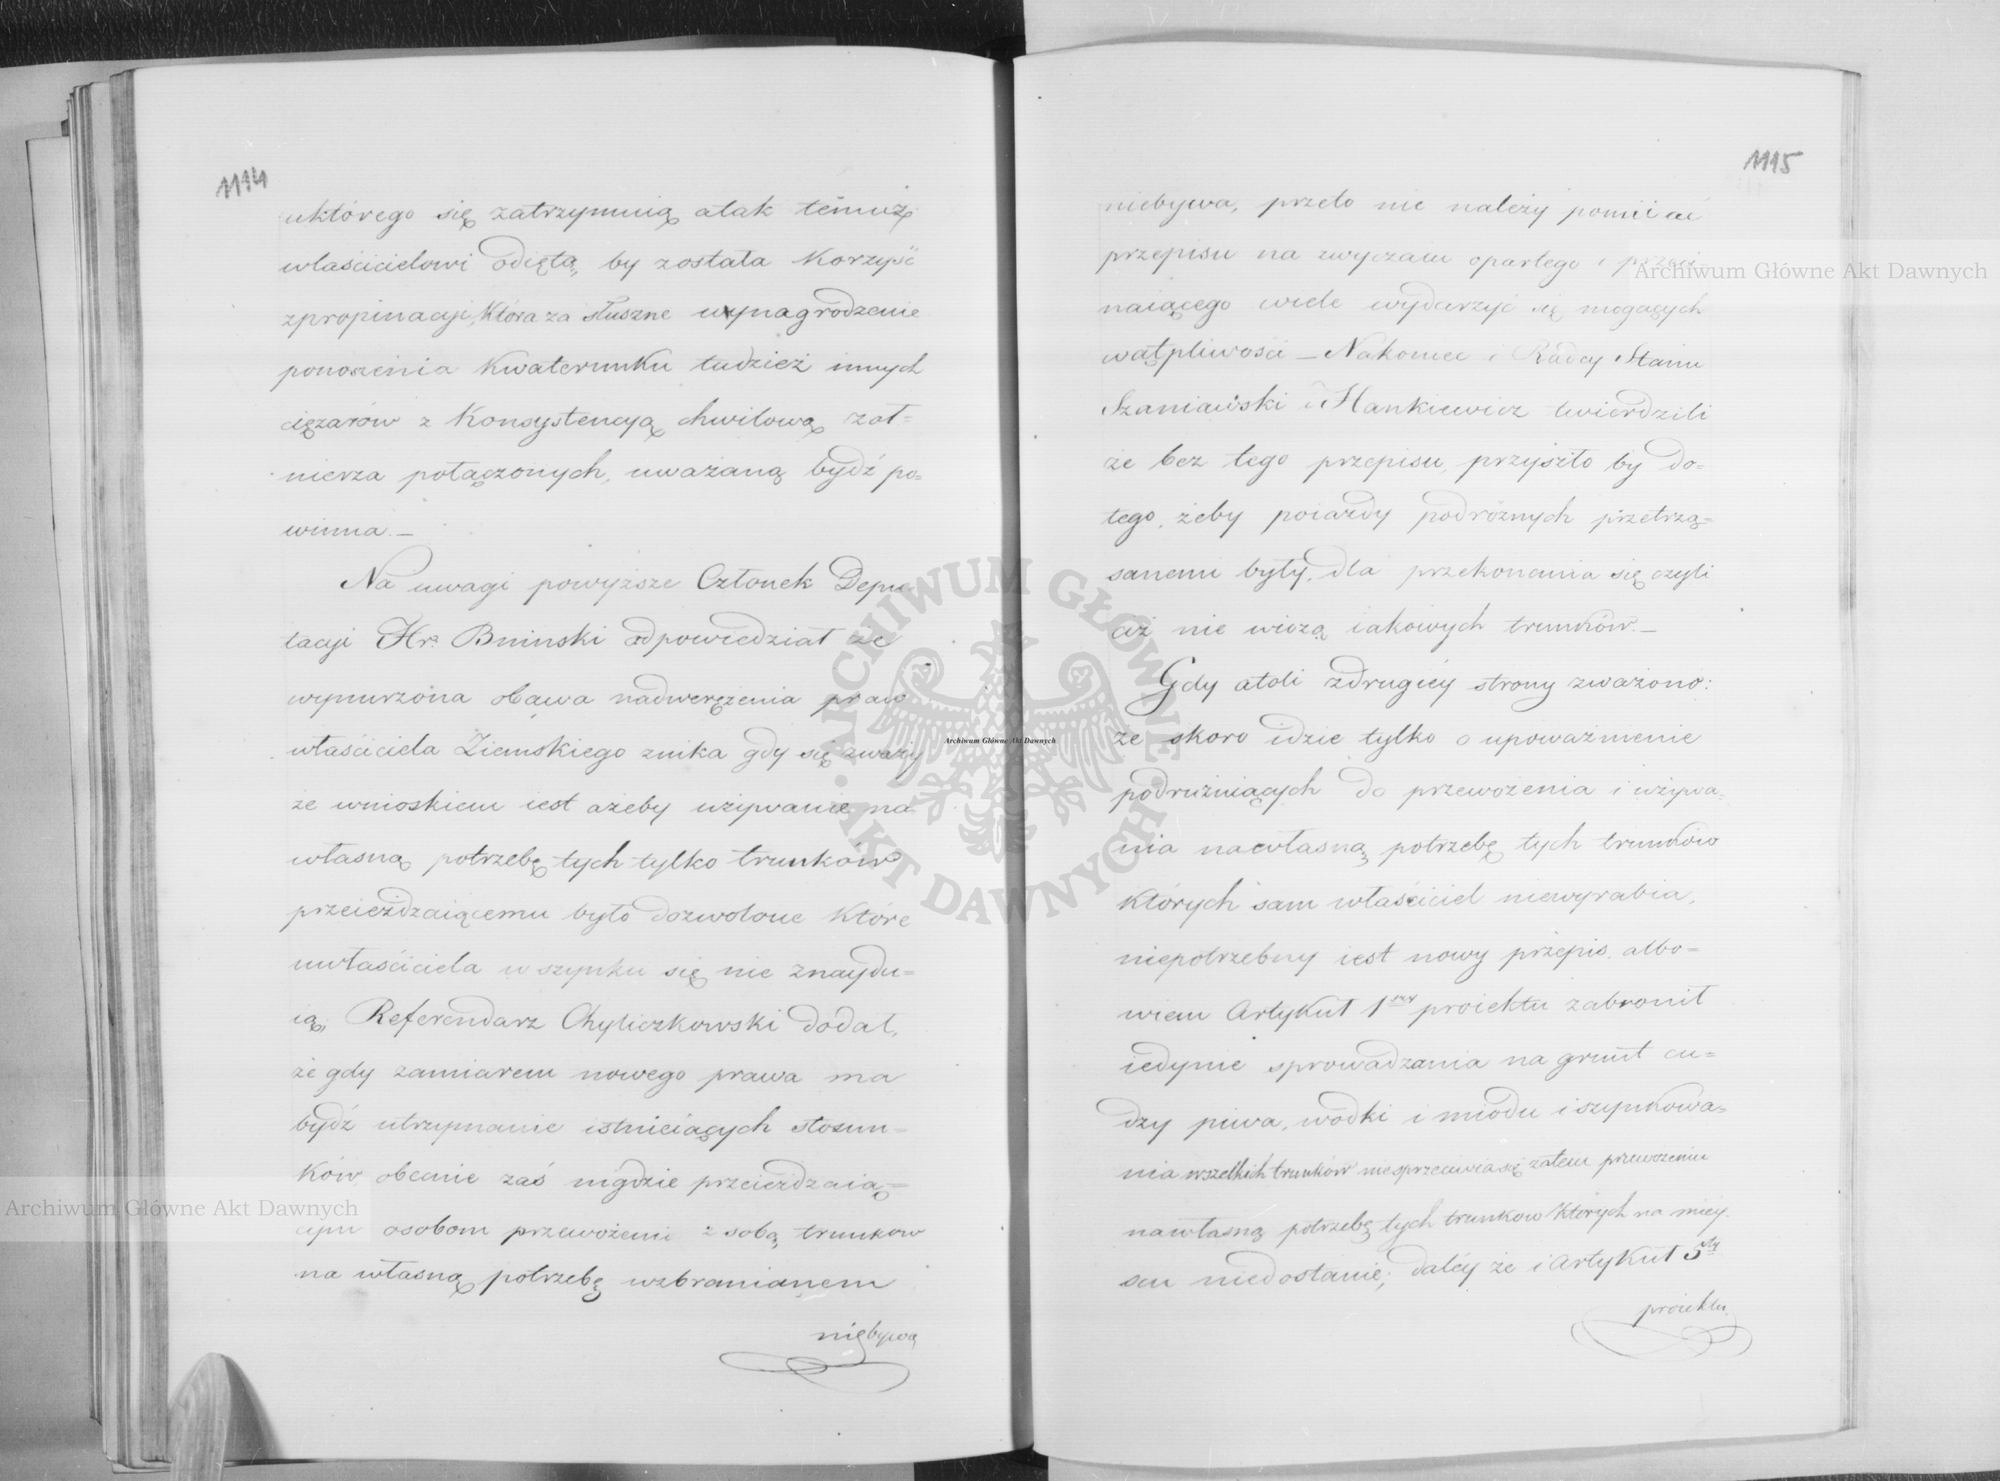 1114
uktórego się zatrzymuią atak témuż
właścicielowi odiętą, by została korzyść
zpropinacyi, która za słuszne wynagrodzenie
ponoszenia kwaterunku tudzież innych
ciężarów z konsystencyą chwilową żoł=
nierza połączonych, uważaną bydź po=
winna.—
Na uwagi powyższe Członek Depu
tacyi Hr. Bninski odpowiedział że
wynurzona obawa nadwerężenia praw
właściciela Ziemskiego znika gdy się zważy
że wnioskiem iest ażeby używanie na
własną potrzebę tych tylko trunków
przeieżdzaiącemu było dozwolone które
uwłaściciela w szynku się nie znaydu=
ią, Referendarz Chyliczkowski dodał,
że gdy zamiarem nowego prawa ma
bydź utrzymanie istnieiących stosun=
ków obecnie zaś nigdzie przeieżdzaią=
cym osobom przewożenie z sobą trunkow
na własną potrzebę wzbranianem
niebywa
1115
niebywa, przeto nie należy pomiiać
przepisu na zwyczaiu opartego i przeci
naiącego wiele wydarzyć się mogących
wątpliwości — Nakoniec i Radcy Stanu
Szaniawski i Hankiewicz twierdzili
że bez tego przepisu, przyszło by do=
tego, żeby poiazdy podróżnych przetrzą=
sanemi były, dla przekonania się czyli
ciż nie wiozą iakowych trunków.—
Gdy atoli zdrugiéy strony zważono:
że skoro idzie tylko o upoważnienie
podrużuiących do przewożenia i używa=
nia nawłasną potrzebę tych trunków
których sam właściciel niewyrabia,
niepotrzebny iest nowy przepis, albo=
wiem Artykuł 1szy proiektu zabronił
iedynie sprowadzania na grunt cu=
dzy piwa, wódki i miodu i szynkowa=
nia wszelkich trunków niesprzeciwia się zatem przewozeniu
nawłasną potrzebę tych trunkow których na miey=
scu niedostanie; daléy że i Artykuł 5ty
proiektu
Archiwum Główne Akt Dawnych
Archiwum Główne Akt Dawnych
Archiwum Główne Akt Dawnych
ARCHIWUM GŁÓWNE · AKT DAWNYCH ·